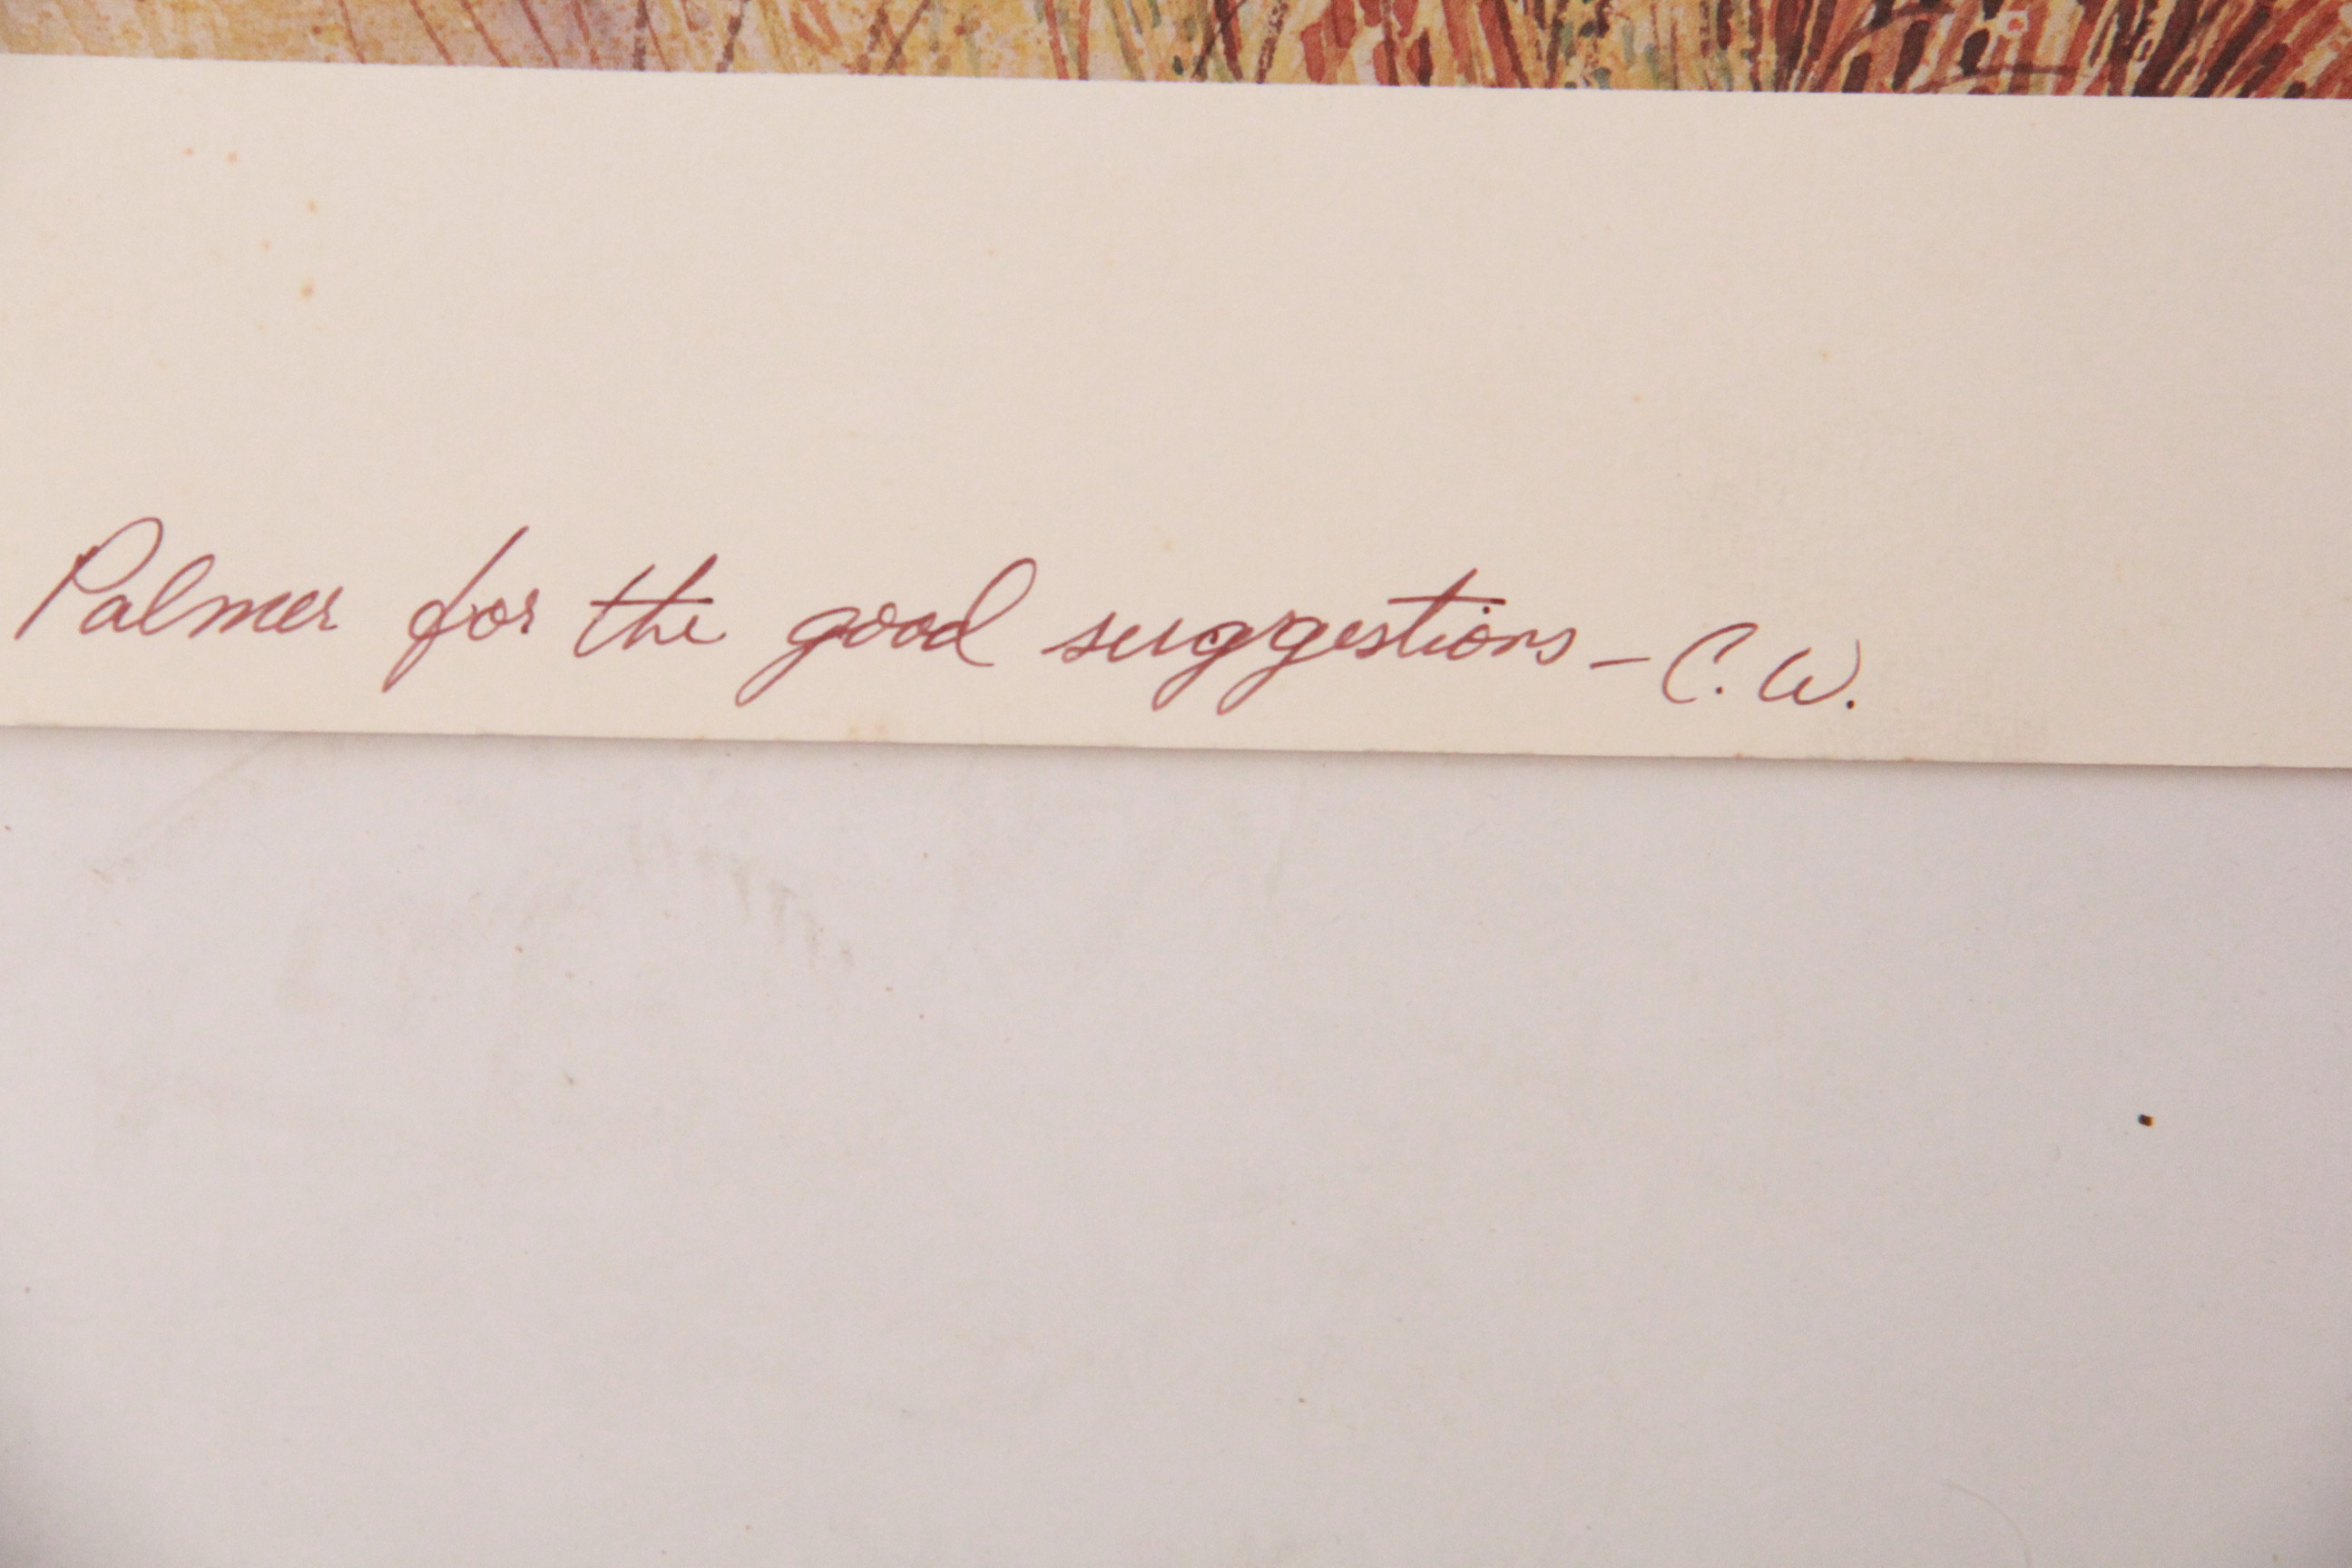 Palmer for the good suggestions – C.W.